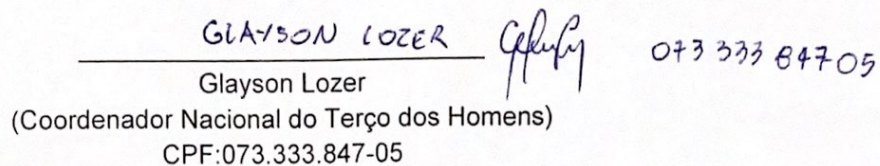 GLAYSON LOZER 073 333 847 05
Glayson Lozer
(Coordenador Nacional do Terço dos Homens)
CPF:073.333.847-05